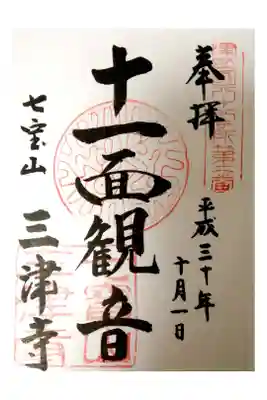 奉拝
平成三十年
十月一日
十一面観音
七宝山
三津寺